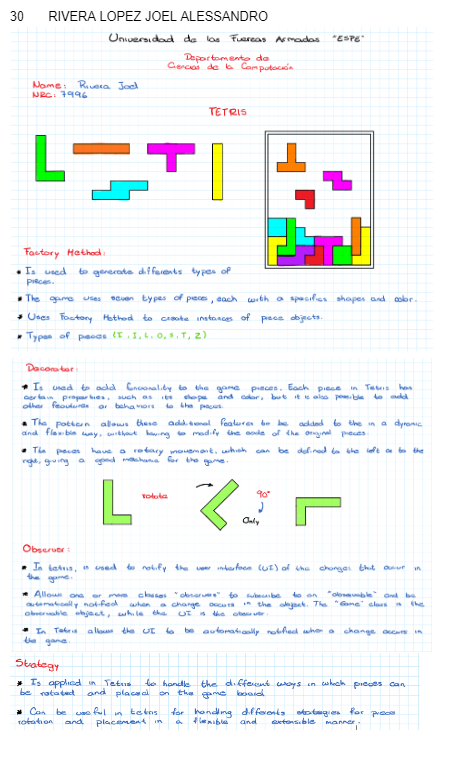 30 RIVERA LOPEZ JOEL ALESSANDRO
Universidad de las Fuerzas Armadas "ESPE"
Departamento de
Ciencias de la Computación
Name: Rivera Joel
NRC: 7996
TETRIS
Factory Method:
* Is used to generate differents types of
pieces.
* The game uses seven types of pieces, each with a specifics shapes and color.
* Uses Factory Method to create instances of piece objects.
* Types of pieces (I, J, L, O, S, T, Z)
Decorator:
* Is used to add funcionality to the game pieces. Each piece in Tetris has
certain properties, such as its shape and color, but it is also possible to add
other features or behaviors to the pieces.
* The pattern allows these additional features to be added to the in a dynamic
and flexible way, without having to modify the code of the original pieces.
* The pieces have a rotary movement, which can be defined to the left or to the
right, giving a good mechanic for the game.
rotate
90°
Only
Observer:
* In tetris, is used to notify the user interface (UI) of the changes that occur in
the game.
* Allows one or more classes "observers" to subscribe to an "observable" and be
automatically notified when a change occurs in the object. The "Game" class is the
observable object, while the UI is the observer.
* In Tetris allows the UI to be automatically notified when a change occurs in
the game.
Strategy
* Is applied in Tetris to handle the different ways in which pieces can
be rotated and placed on the game board
* Can be useful in tetris for handling differents strategies for piece
rotation and placement in a flexible and extensible manner.